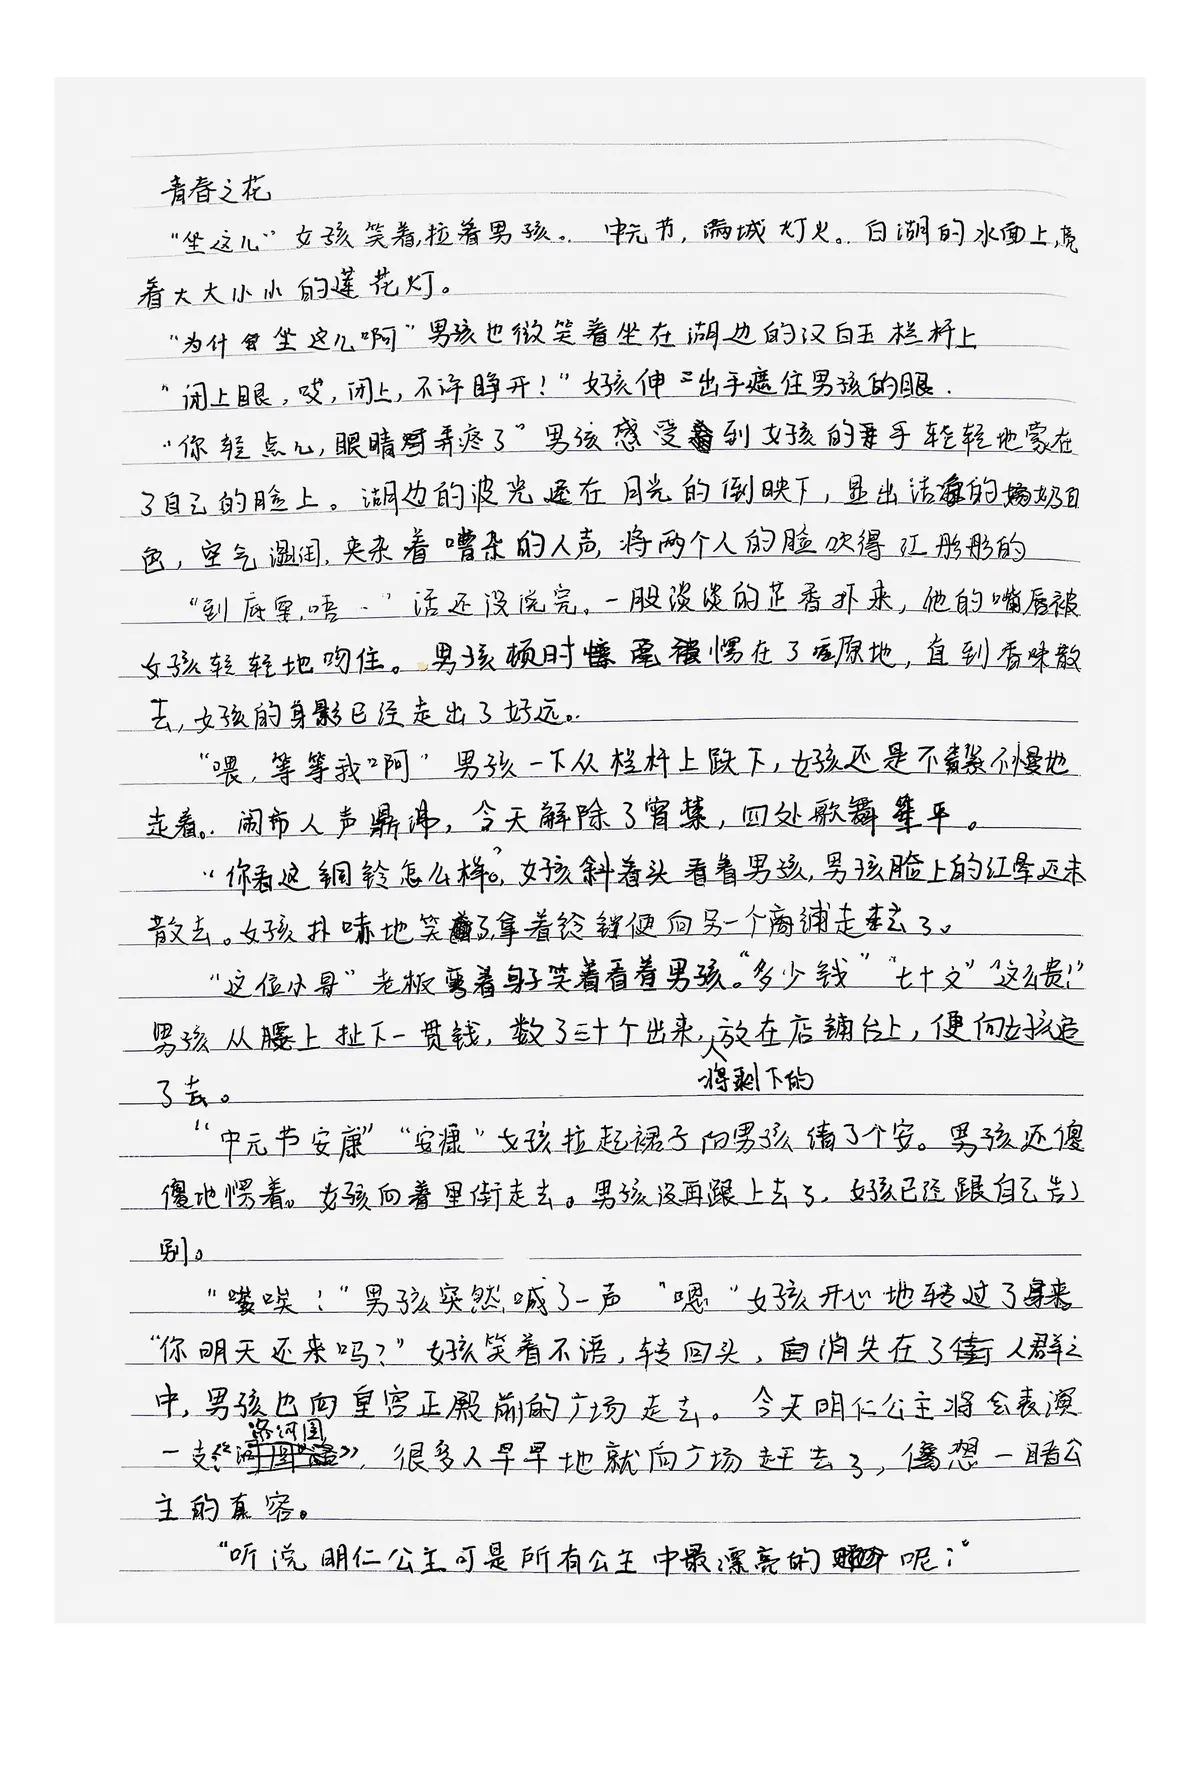 青春之花
“坐这儿”女孩笑着,拉着男孩。中元节,满城灯火。白湖的水面上,亮
着大大小小的莲花灯。
“为什么坐这儿啊”男孩也微笑着坐在湖边的汉白玉栏杆上
“闭上眼,哎,闭上,不许睁开!”女孩伸出手遮住男孩的眼.
“你轻点儿,眼睛弄疼了”男孩感受到女孩的手轻轻地蒙在
了自己的脸上。湖边的波光在月光的倒映下,显出洁的奶白
色,空气湿润,夹杂着嘈杂的人声,将两个人的脸吹得红彤彤的
“到底要,唔..”话还没说完,一股淡淡的芷香扑来,他的嘴唇被
女孩轻轻地吻住。男孩顿时愣在了原地,直到香味散
去,女孩的身影已经走出了好远。
“喂,等等我啊”男孩一下从栏杆上跌下,女孩还是不紧不慢地
走着。闹市人声鼎沸,今天解除了宵禁,四处歌舞笙平。
“你看这铜铃怎么样?”女孩斜着头看着男孩,男孩脸上的红晕还未
散去。女孩扑哧地笑了,拿着铃铛便向另一个商铺走去了。
“这位小哥”老板弯着身子笑着看着男孩。“多少钱”“七十文”“这么贵!”
男孩从腰上扯下一贯钱,数了三十个出来,将剩下的放在店铺台上,便向女孩追
了去。
“中元节安康”“安康”女孩拉起裙子向男孩请了个安。男孩还傻
傻地愣着。女孩向着里街走去。男孩没再跟上去了,女孩已经跟自己告了
别。
“唉!”男孩突然喊了一声“嗯”女孩开心地转过了身来
“你明天还来吗?”女孩笑着不语,转回头,消失在了人群之
中,男孩也向皇宫正殿前的广场走去。今天明仁公主将会表演
一支《洛河图》,很多人早早地就向广场赶去了,想一睹公
主的真容。
“听说明仁公主可是所有公主中最漂亮的呢!”